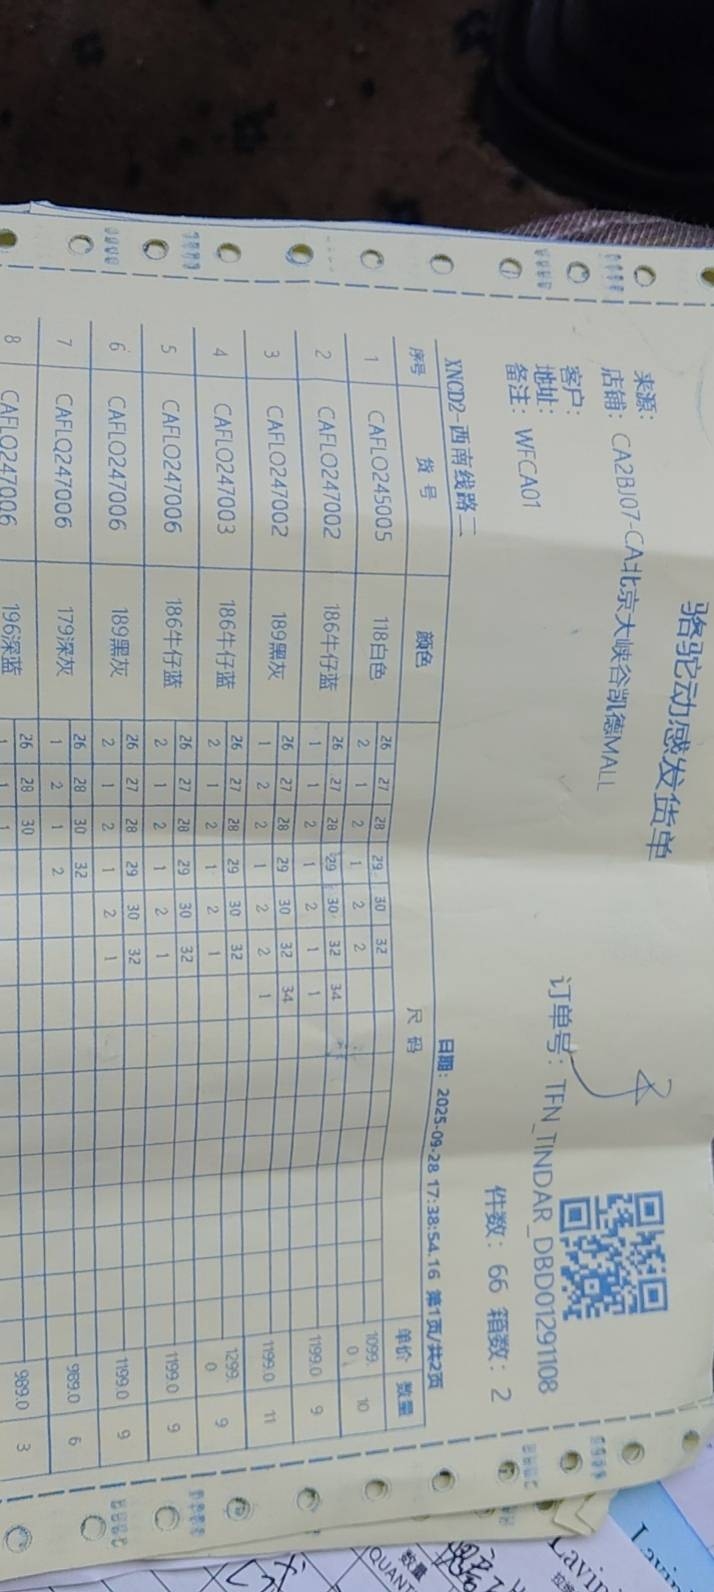 骆驼动感发货单
来源：
店铺：CA2BJ07-CA北京大峡谷凯德MALL
客户：
订单号：TFN_TINDAR_DBD01291108
地址：
备注：WFCA01
件数：66 箱数：2
XNCD2-西南线路二
日期：2025-09-28 17:38:54.16 第1页/共2页
序号 货号 颜色 尺码 单价 数量
26 27 28 29 30 32
1 CAFLO245005 118白色 2 1 2 1 2 2 1099.0 10
26 27 28 29 30 32 34
2 CAFLO247002 186牛仔蓝 1 1 2 1 2 1 1 1199.0 9
26 27 28 29 30 32 34
3 CAFLO247002 189黑灰 1 2 2 1 2 2 1 1199.0 11
26 27 28 29 30 32
4 CAFLO247003 186牛仔蓝 2 1 2 1 2 1 1299.0 9
26 27 28 29 30 32
5 CAFLO247006 186牛仔蓝 2 1 2 1 2 1 1199.0 9
26 27 28 29 30 32
6 CAFLO247006 189黑灰 2 1 2 1 2 1 1199.0 9
26 28 30 32
7 CAFLQ247006 179深灰 1 2 1 2 989.0 6
26 28 30
8 CAFLQ247006 196深蓝 1 1 1 989.0 3
数量
Lavi